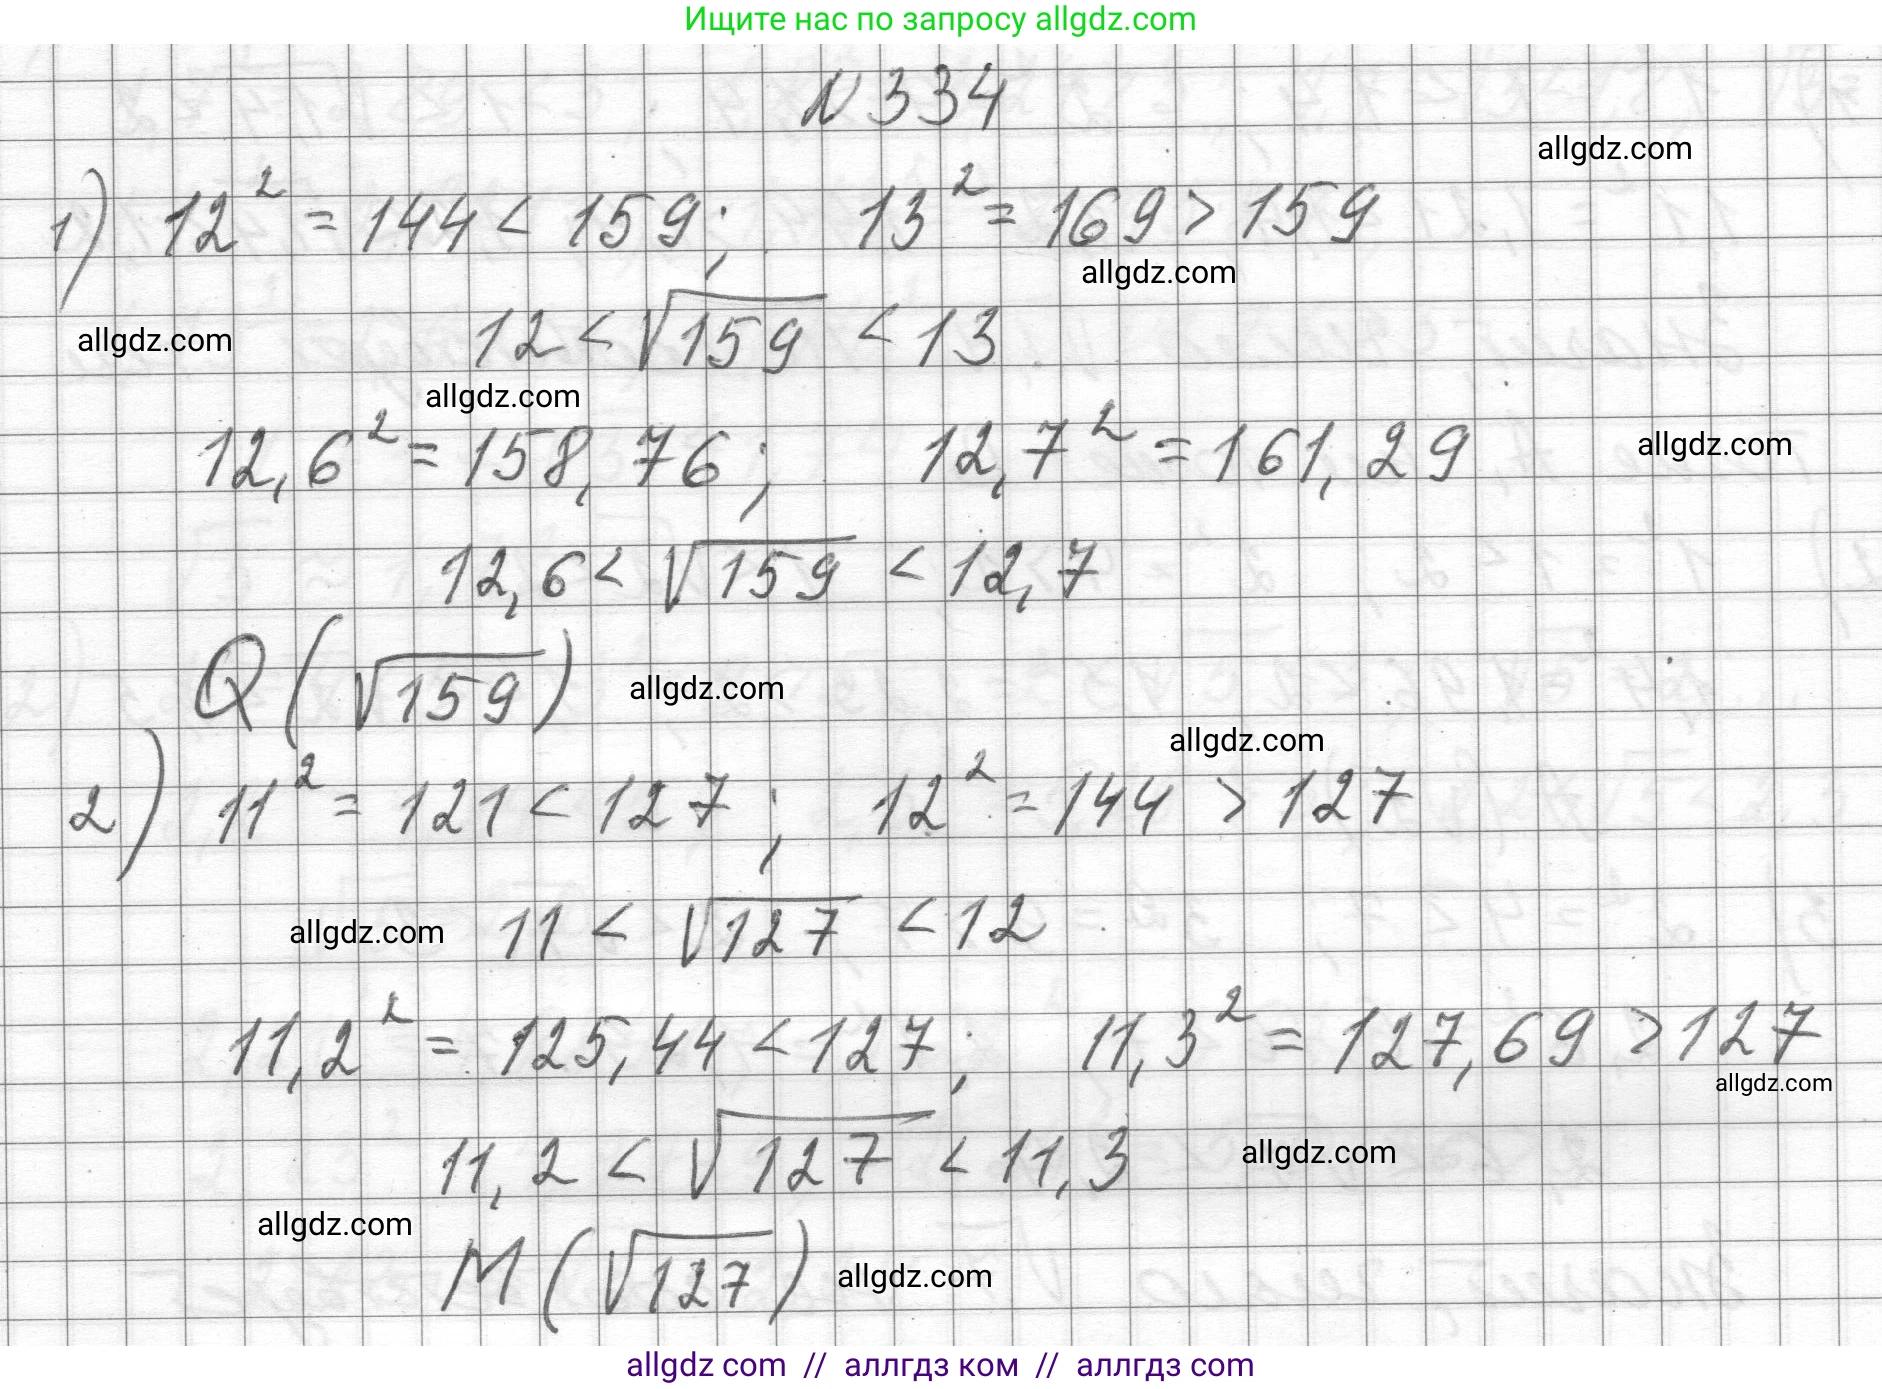 Ищите нас по запросу allgdz.com
N 334
allgdz.com
1) 12² = 144 < 159; 13² = 169 > 159
allgdz.com
12 < √159 < 13
allgdz.com
allgdz.com
12,6² = 158,76; 12,7² = 161,29
allgdz.com
12,6 < √159 < 12,7
Q(√159)
allgdz.com
allgdz.com
2) 11² = 121 < 127; 12² = 144 > 127
allgdz.com
11 < √127 < 12
11,2² = 125,44 < 127; 11,3² = 127,69 > 127
allgdz.com
11,2 < √127 < 11,3
allgdz.com
allgdz.com
M(√127)
allgdz.com
allgdz com // аллгдз ком // аллгдз com